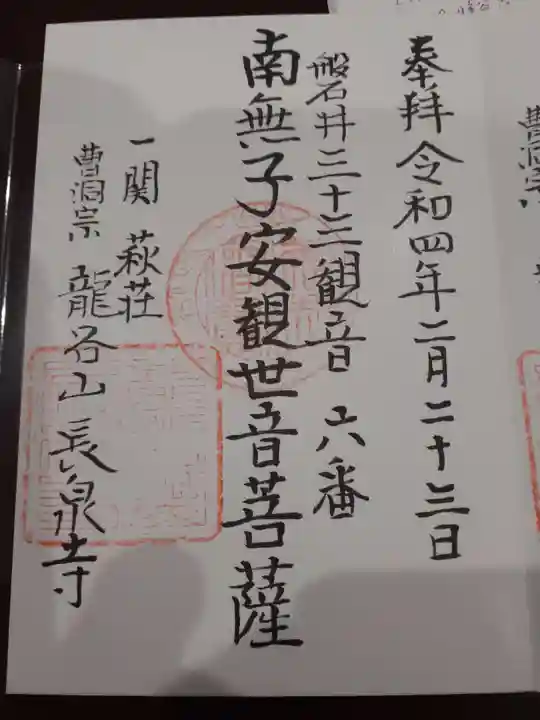 奉拜 令和四年二月二十三日
磐石井三十三観音 六番
南無子安観世音菩薩
一関 萩荘
曹洞宗 龍谷山 長泉寺
曹洞宗